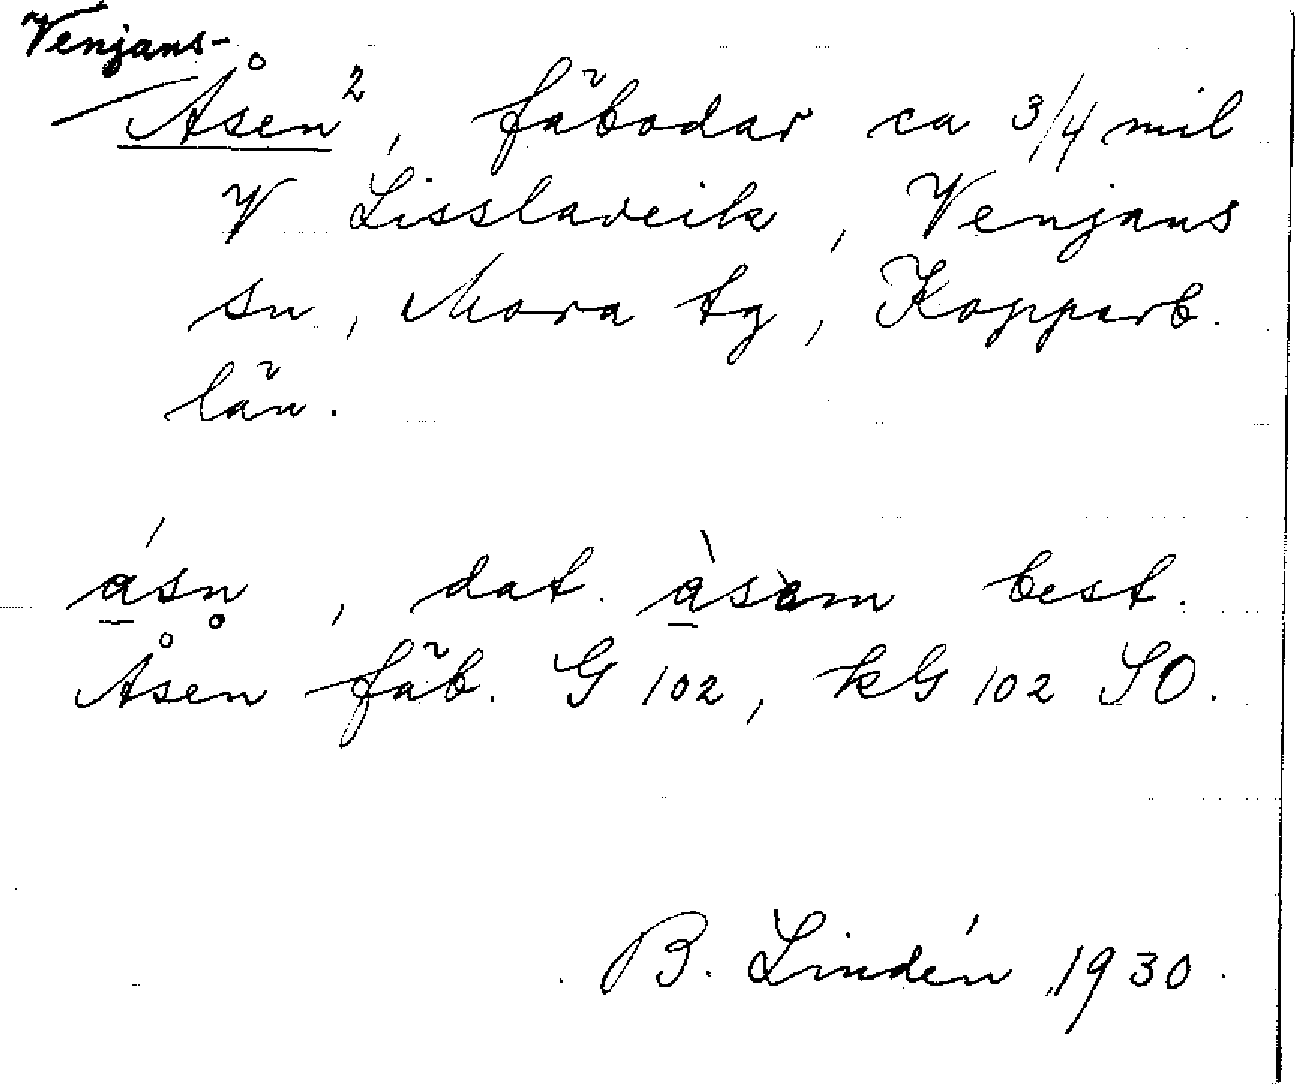 Venjans-
Åsen², fäbodar ca 3/4 mil
V Lisslaveik, Venjans
sn, Mora tg, Kopparb.
län.
ásn̥, dat. àsøm best.
Åsen fäb. G 102, kG 102 SO.
B. Lindén 1930.